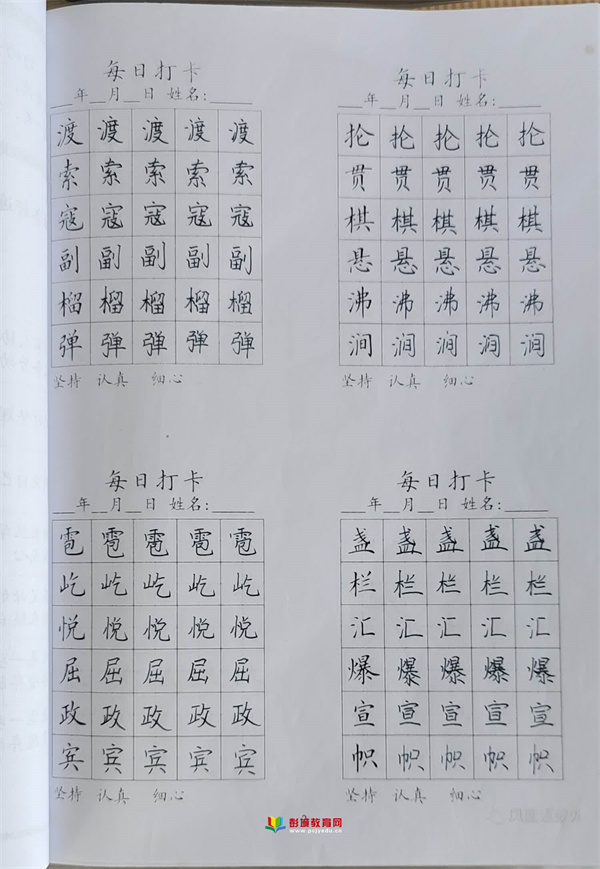 每日打卡
___年__月__日 姓名:_____
渡 渡 渡 渡 渡
索 索 索 索 索
寇 寇 寇 寇 寇
副 副 副 副 副
榴 榴 榴 榴 榴
弹 弹 弹 弹 弹
坚持 认真 细心
每日打卡
___年__月__日 姓名:_____
抡 抡 抡 抡 抡
贯 贯 贯 贯 贯
棋 棋 棋 棋 棋
悬 悬 悬 悬 悬
沸 沸 沸 沸 沸
涧 涧 涧 涧 涧
坚持 认真 细心
每日打卡
___年__月__日 姓名:_____
雹 雹 雹 雹 雹
屹 屹 屹 屹 屹
悦 悦 悦 悦 悦
屈 屈 屈 屈 屈
政 政 政 政 政
宾 宾 宾 宾 宾
坚持 认真 细心
每日打卡
___年__月__日 姓名:_____
盏 盏 盏 盏 盏
栏 栏 栏 栏 栏
汇 汇 汇 汇 汇
爆 爆 爆 爆 爆
宣 宣 宣 宣 宣
帜 帜 帜 帜 帜
坚持 认真 细心
彭波教育网
www.pcjyedu.cn